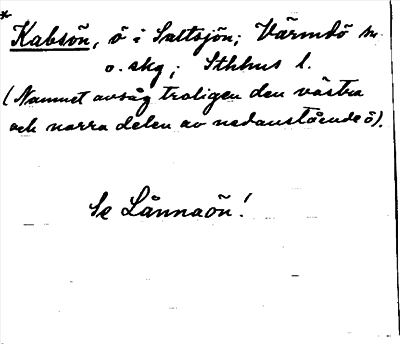 * Kabsön, ö i Saltsjön; Värmdö sn.
o. skg; Sthlms l.
(Namnet avsåg troligen den västra
och norra delen av nedanstående ö).
Se Lännaön!